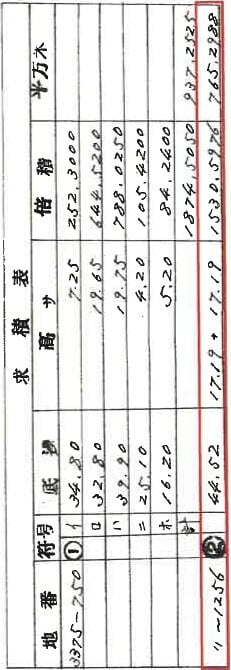 求積表
地番 符号 底邊 高サ 倍積 平方米
3375-750 ① イ 34.80 7.25 252.3000
ロ 32.80 19.65 644.5200
ハ 39.90 19.75 788.0250
ニ 25.10 4.20 105.4200
ホ 16.20 5.20 84.2400
計 1874.5050 937.2525
〃~1256 ② 44.52 17.19+17.19 1530.5976 765.2988